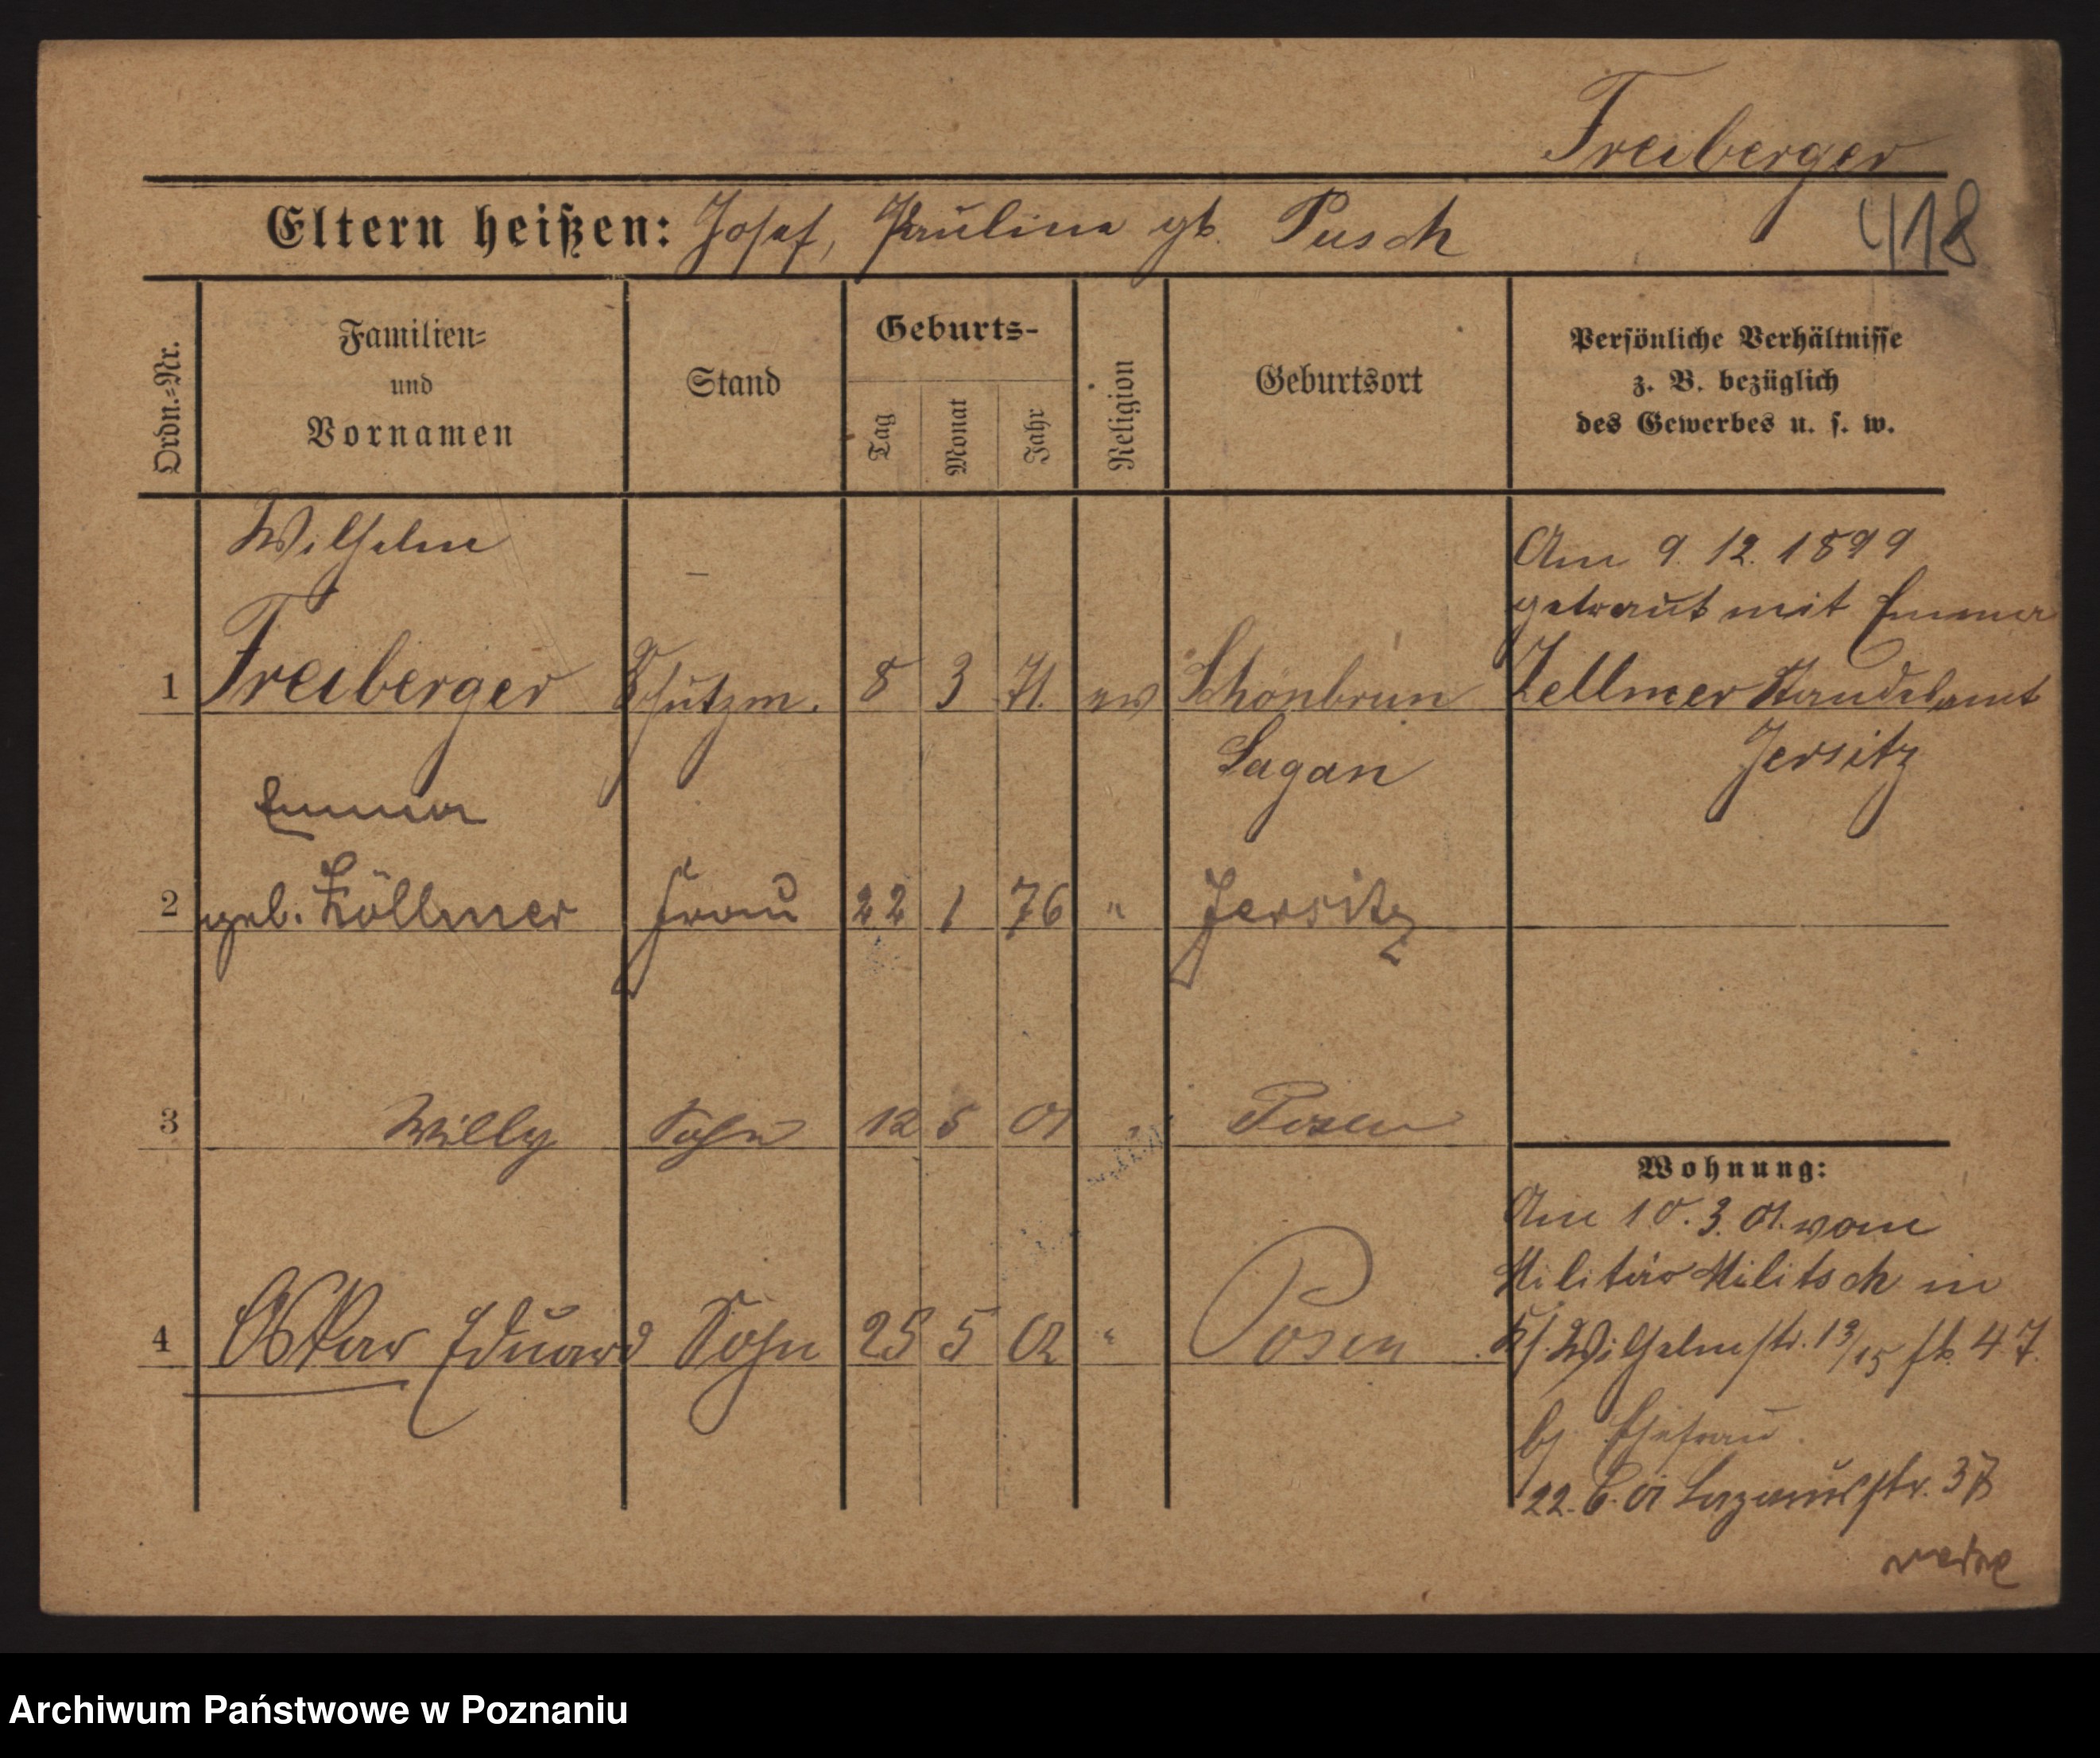 Freiberger
Eltern heißen: Josef, Paulina gb. Pusch
418
Ordn.-Nr.
Familien-
und
Vornamen
Stand
Geburts-
Tag
Monat
Jahr
Religion
Geburtsort
Persönliche Verhältnisse
z. B. bezüglich
des Gewerbes u. s. w.
Wilhelm
Am 9. 12. 1899
getraut mit Emma
1 Freiberger Schutzm. 8 3 71. ev Schönbrun Zellmer Standesamt
Sagan Jersitz
Emma
2 geb. Zöllmer Frau 22 1 76 " Jersitz
3 Willy Sohn 12 5 01 Posen
Wohnung:
Am 10. 3. 01. vom
Militär Militsch in
4 Oskar Eduard Sohn 25 5 02 " Posen
Wilhelmstr. 13/15 47.
Ehefrau
22. 6. 01 Lazarusstr. 37
Archiwum Państwowe w Poznaniu